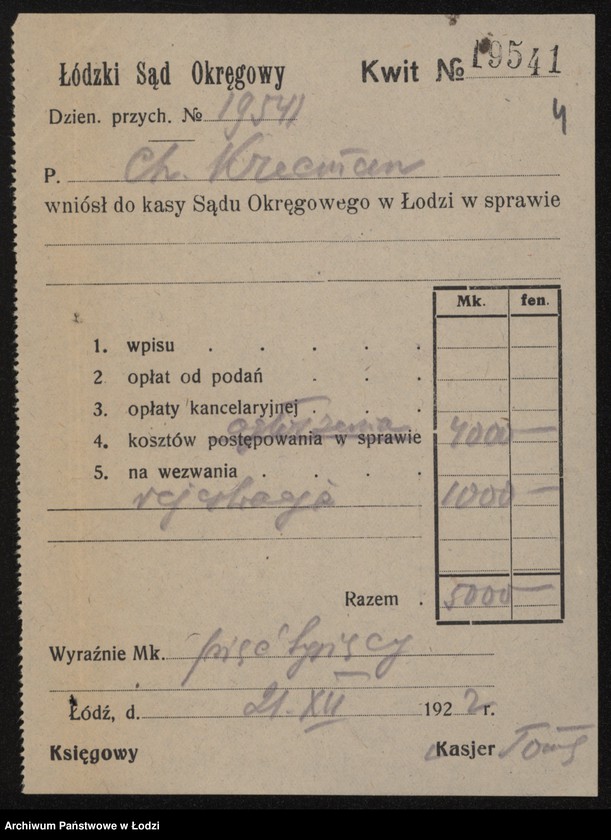 Łódzki Sąd Okręgowy
Kwit № 19541
Dzien. przych. № 19541
4
P. Ch. Krecman
wniósł do kasy Sądu Okręgowego w Łodzi w sprawie
Mk. fen.
1. wpisu . . . . .
2 opłat od podań . . .
3. opłaty kancelaryjnej . . .
ogłoszenia
4. kosztów postępowania w sprawie 4000 —
5. na wezwania . . . .
rejestracja 1000 —
Razem . 5000 —
Wyraźnie Mk. pięć tysięcy
Łódź, d. 21. XII 1922 r.
Księgowy Kasjer
Archiwum Państwowe w Łodzi